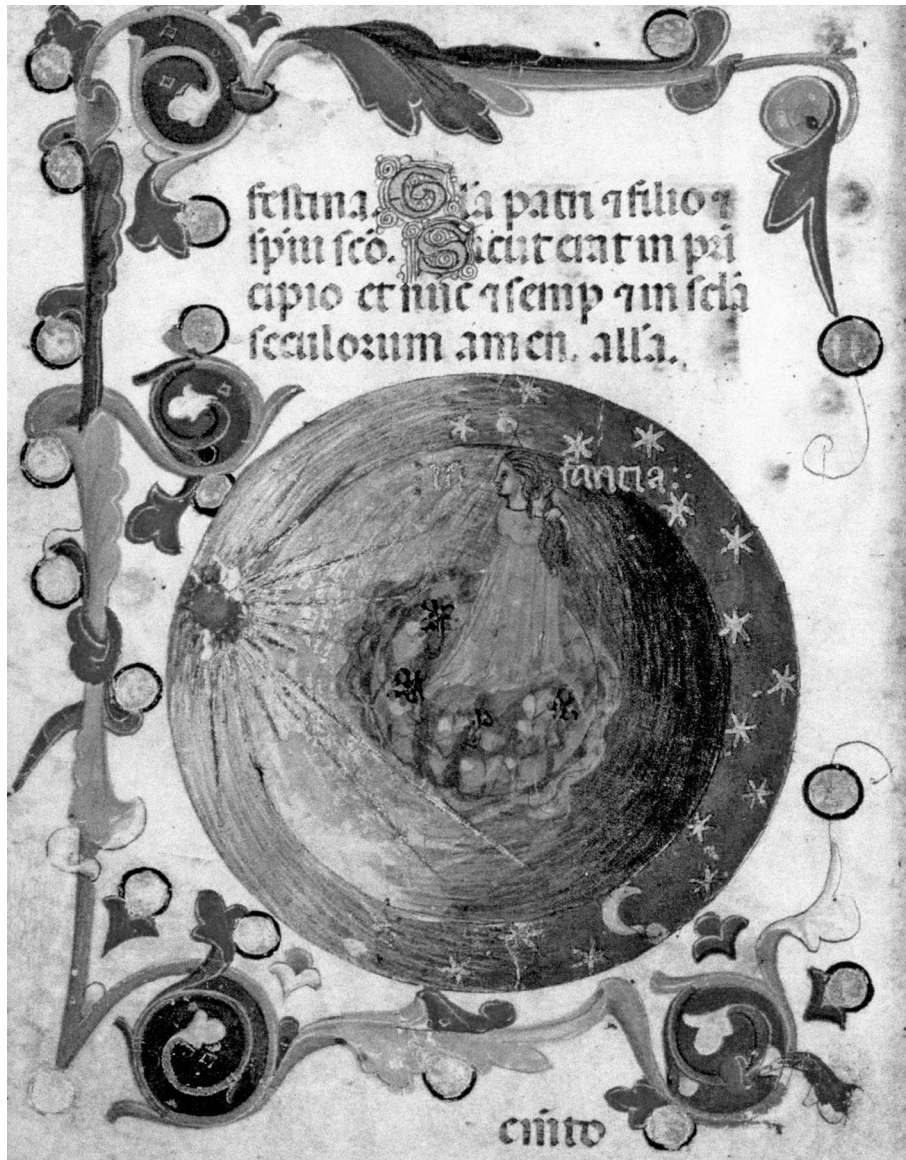 festina. Gl̃a patri ⁊ filio ⁊
sp̃iui sc̃o. Sicut erat in pri
cipio et nũc ⁊ semp ⁊ in sc̃la
seculorum amen. all̃a.
in fantia: